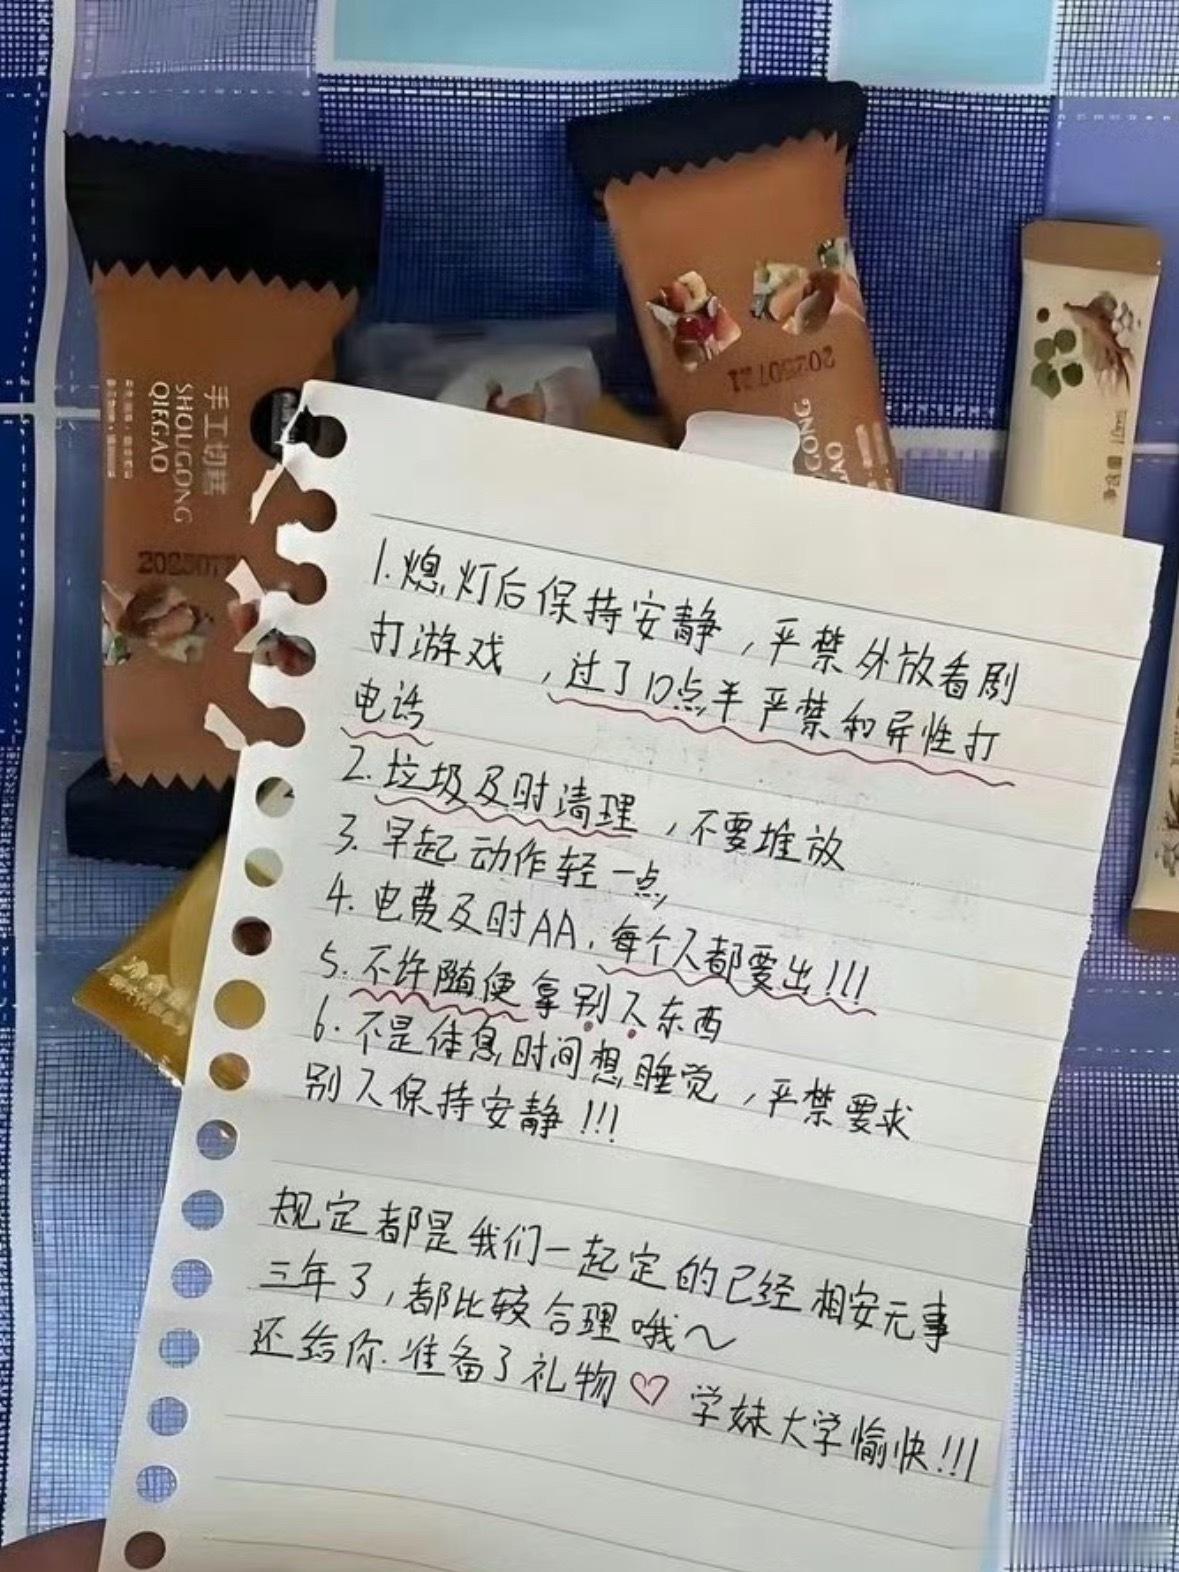 手工切糕
SHOUGONG
QIEGAO
20250721
GONG
1.熄灯后保持安静，严禁外放看剧
打游戏，过了10点半严禁和异性打
电话
2.垃圾及时清理，不要堆放
3.早起动作轻一点
4.电费及时AA，每个人都要出!!!
5.不许随便拿别人东西
6.不是休息时间想睡觉，严禁要求
别人保持安静!!!
规定都是我们一起定的已经相安无事
三年了，都比较合理哦～
还给你准备了礼物♡ 学妹大学愉快!!!